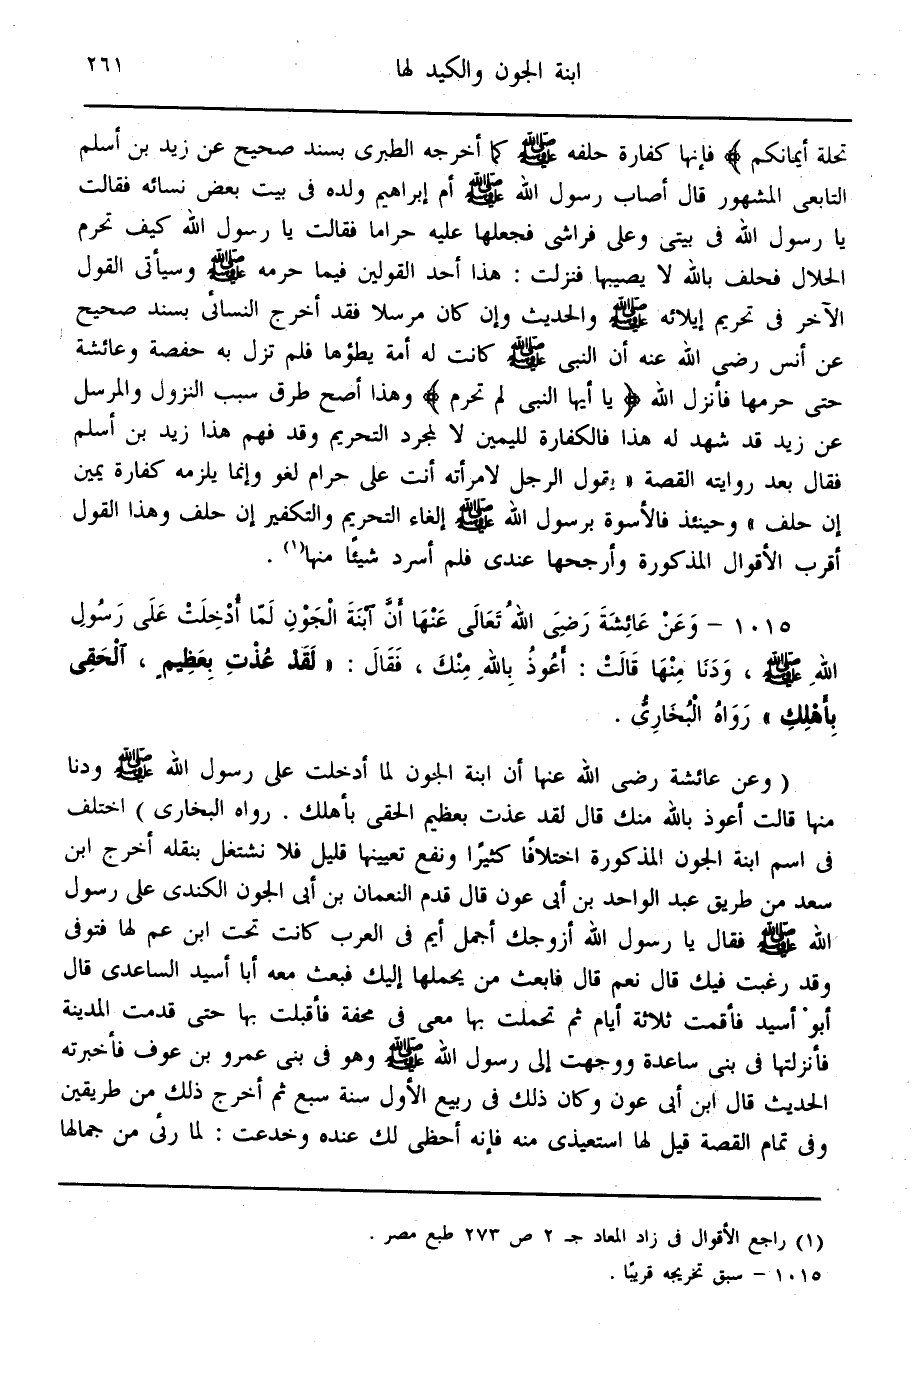 ابنة الجون والكيد لها ٢٦١
تحلة أيمانكم ﴾ فإنها كفارة حلفه ﷺ كما أخرجه الطبرى بسند صحيح عن زيد بن أسلم
التابعى المشهور قال أصاب رسول الله ﷺ أم إبراهيم ولده فى بيت بعض نسائه فقالت
يا رسول الله فى بيتى وعلى فراشى فجعلها عليه حراما فقالت يا رسول الله كيف تحرم
الحلال فحلف بالله لا يصيبها فنزلت : هذا أحد القولين فيما حرمه ﷺ وسيأتى القول
الآخر فى تحريم إيلائه ﷺ والحديث وإن كان مرسلا فقد أخرج النسائى بسند صحيح
عن أنس رضى الله عنه أن النبى ﷺ كانت له أمة يطؤها فلم تزل به حفصة وعائشة
حتى حرمها فأنزل الله ﴿ يا أيها النبى لم تحرم ﴾ وهذا أصح طرق سبب النزول والمرسل
عن زيد قد شهد له هذا فالكفارة لليمين لا لمجرد التحريم وقد فهم هذا زيد بن أسلم
فقال بعد روايته القصة « يقول الرجل لامرأته أنت على حرام لغو وإنما يلزمه كفارة يمين
إن حلف » وحينئذ فالأسوة برسول الله ﷺ إلغاء التحريم والتكفير إن حلف وهذا القول
أقرب الأقوال المذكورة وأرجحها عندى فلم أسرد شيئًا منها(١) .
١٠١٥ – وَعَنْ عَائِشَةَ رَضِيَ اللهُ تَعَالَى عَنْهَا أَنَّ آبْنَةَ الْجَوْنِ لَمَّا أُدْخِلَتْ عَلَى رَسُولِ
اللهِ ﷺ ، وَدَنَا مِنْهَا قَالَتْ : أَعُوذُ بِاللهِ مِنْكَ ، فَقَالَ : « لَقَدْ عُذْتِ بِعَظِيمٍ ، اَلْحَقِى
بِأَهْلِكِ » رَوَاهُ الْبُخَارِىُّ .
( وعن عائشة رضى الله عنها أن ابنة الجون لما أدخلت على رسول الله ﷺ ودنا
منها قالت أعوذ بالله منك قال لقد عذت بعظيم الحقى بأهلك . رواه البخارى ) اختلف
فى اسم ابنة الجون المذكورة اختلافًا كثيرًا ونفع تعيينها قليل فلا نشتغل بنقله أخرج ابن
سعد من طريق عبد الواحد بن أبى عون قال قدم النعمان بن أبى الجون الكندى على رسول
الله ﷺ فقال يا رسول الله أزوجك أجمل أيم فى العرب كانت تحت ابن عم لها فتوفى
وقد رغبت فيك قال نعم قال فابعث من يحملها إليك فبعث معه أبا أسيد الساعدى قال
أبو أسيد فأقمت ثلاثة أيام ثم تحملت بها معى فى محفة فأقبلت بها حتى قدمت المدينة
فأنزلتها فى بنى ساعدة ووجهت إلى رسول الله ﷺ وهو فى بنى عمرو بن عوف فأخبرته
الحديث قال ابن أبى عون وكان ذلك فى ربيع الأول سنة سبع ثم أخرج ذلك من طريقين
وفى تمام القصة قيل لها استعيذى منه فإنه أحظى لك عنده وخدعت : لما رئى من جمالها
(١) راجع الأقوال فى زاد المعاد جـ ٢ ص ٢٧٣ طبع مصر .
١٠١٥ – سبق تخريجه قريبًا .